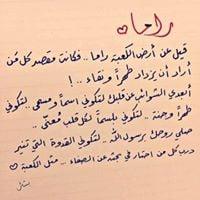 راما
قيل عن أرض الكعبة راما .. فكانت مقصد كل من
أراد أن يزداد طهراً ونقاء .. !
أبعدي الشوائب عن قلبك لتكوني اسماً ومسمى .. لتكوني
طهراً وجنة .. لتكوني بلسماً لكل قلب مُعنّى ..
صلي روحك برسول الله .. لتكوني القدوة التي تنير
درب كل من احتار في بحثه عن الصفاء .. مثل الكعبة